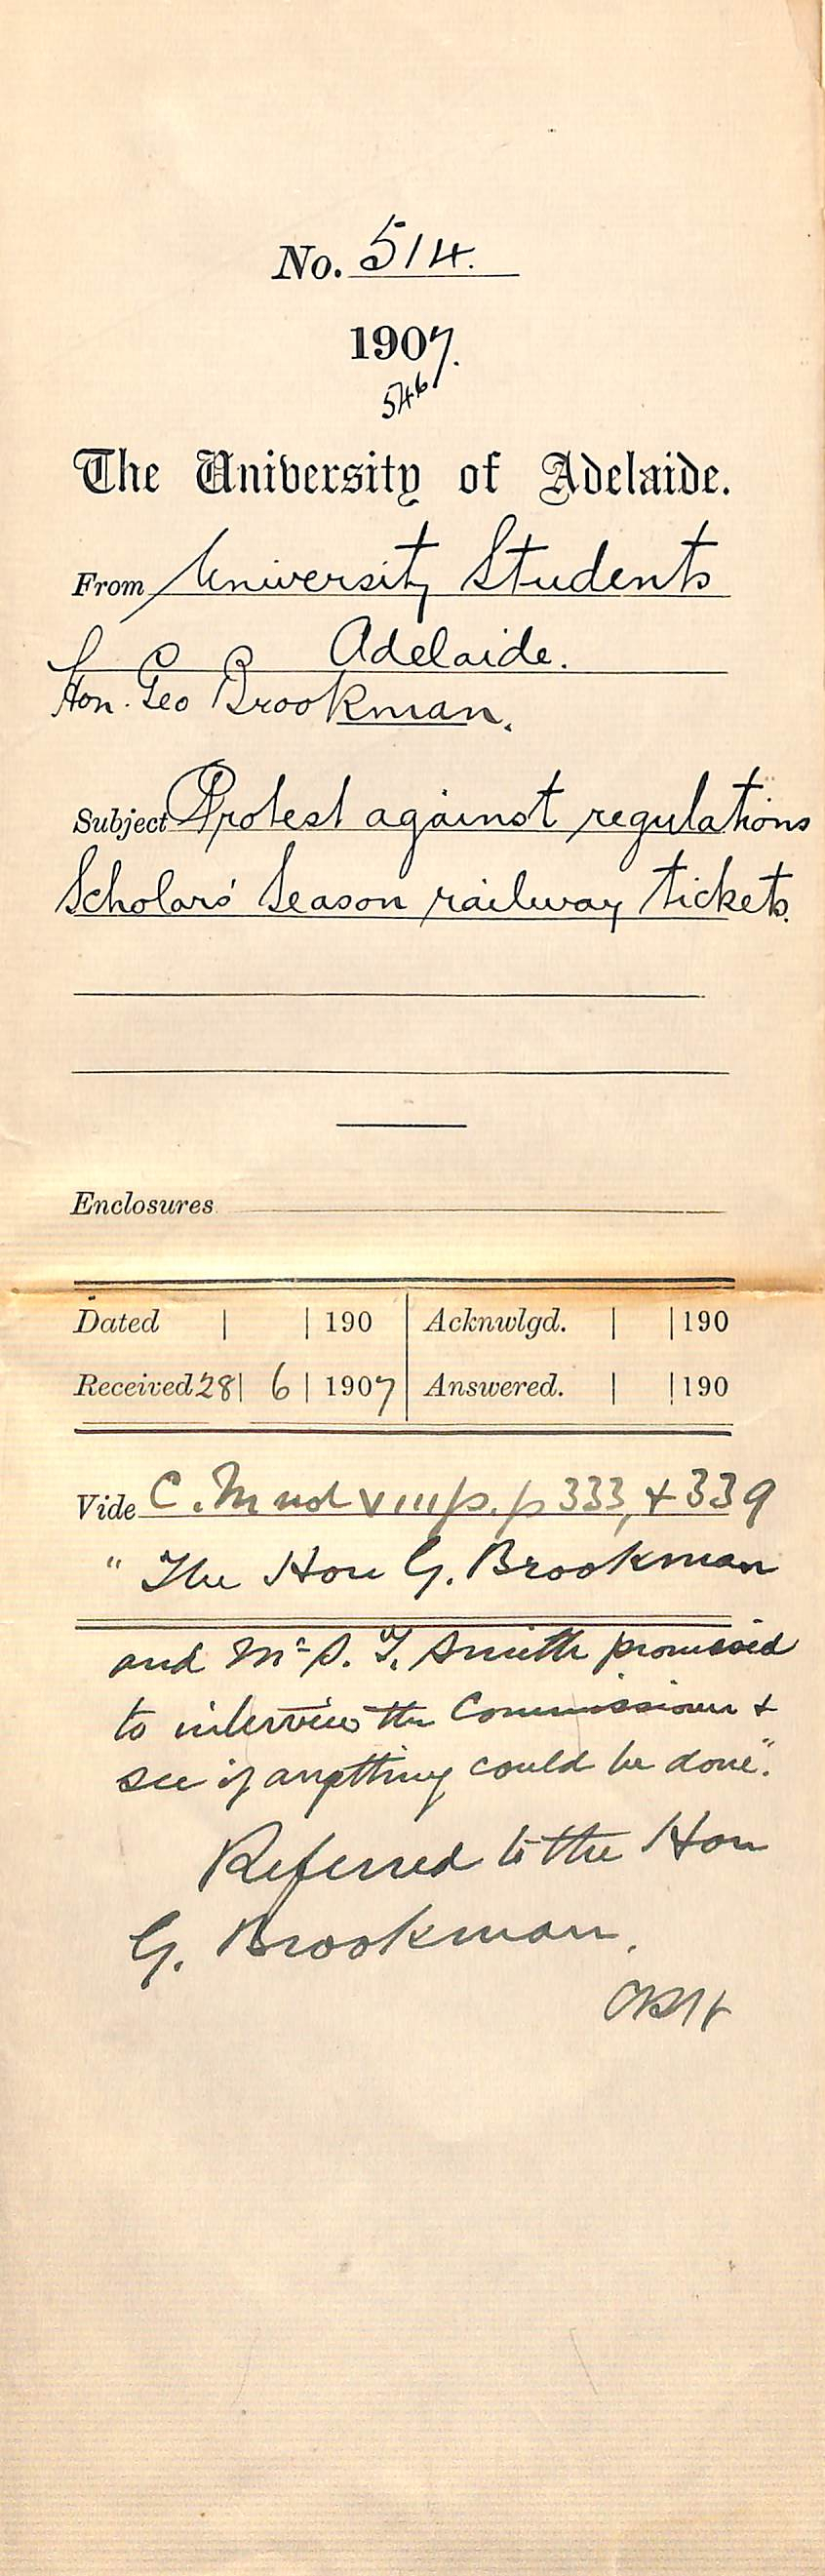 No. 514.
1907.
546
The University of Adelaide.
From University Students
Adelaide.
Hon. Geo Brookman.
Subject Protest against regulations
Scholars' Season railway tickets.
Enclosures
Dated | | 190 | Acknwlgd. | | 190
Received 28 | 6 | 1907 | Answered. | | 190
Vide C. M vol VIII p. p 333, & 339
"The Hon G. Brookman
and Mr S. T. Smith promised
to interview the Commissioner &
see if anything could be done".
Referred to the Hon
G. Brookman.